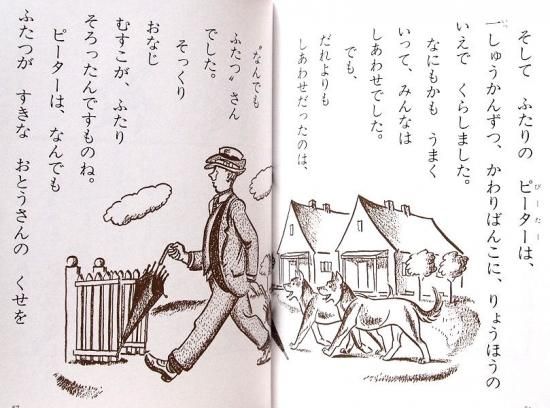 そして ふたりの ピーターは、
一しゅうかんずつ、かわりばんこに、りょうほうの
いえで くらしました。
なにもかも うまく
いって、みんなは
しあわせでした。
でも、
だれよりも
しあわせだったのは、
“なんでも
ふたつ”さん
でした。
そっくり
おなじ
むすこが、ふたり
そろったんですものね。
ピーターは、なんでも
ふたつが すきな おとうさんの くせを